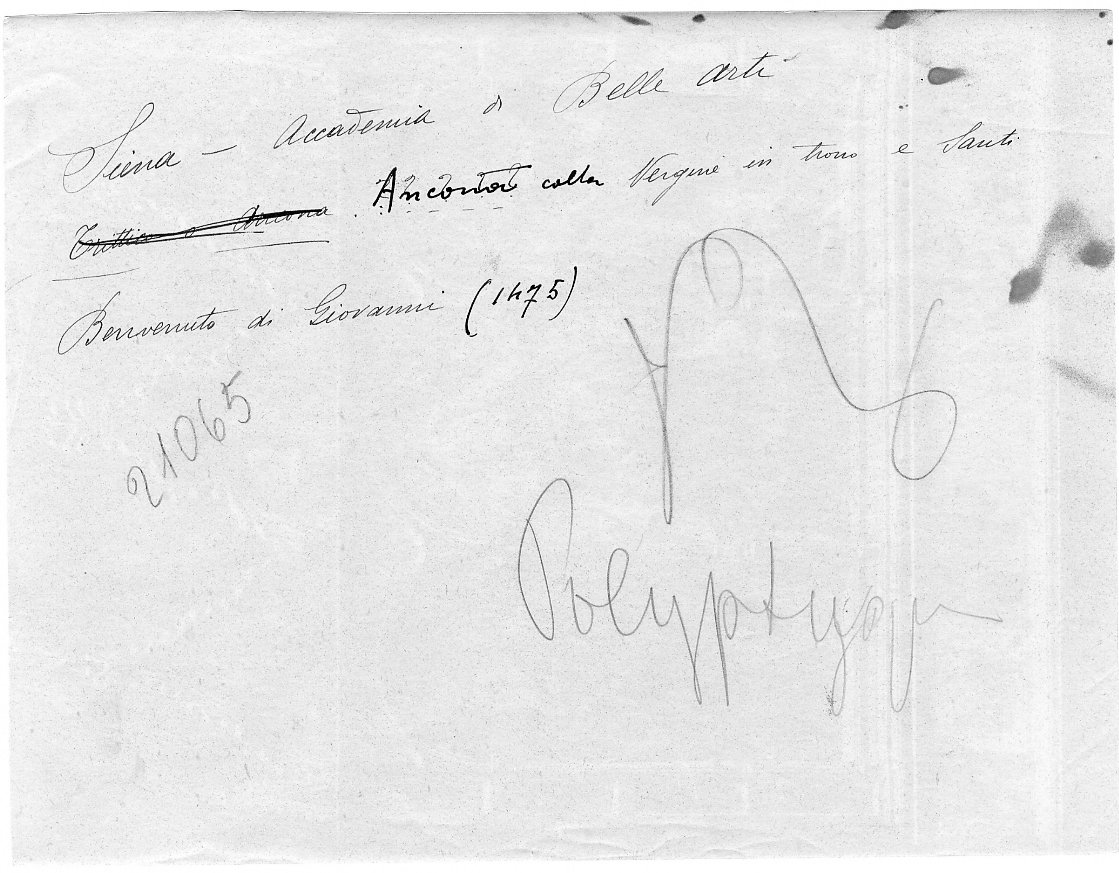 Siena – Accademia di Belle Arti
Trittico o Ancona Ancona colla Vergine in trono e Santi
Benvenuto di Giovanni (1475)
21065